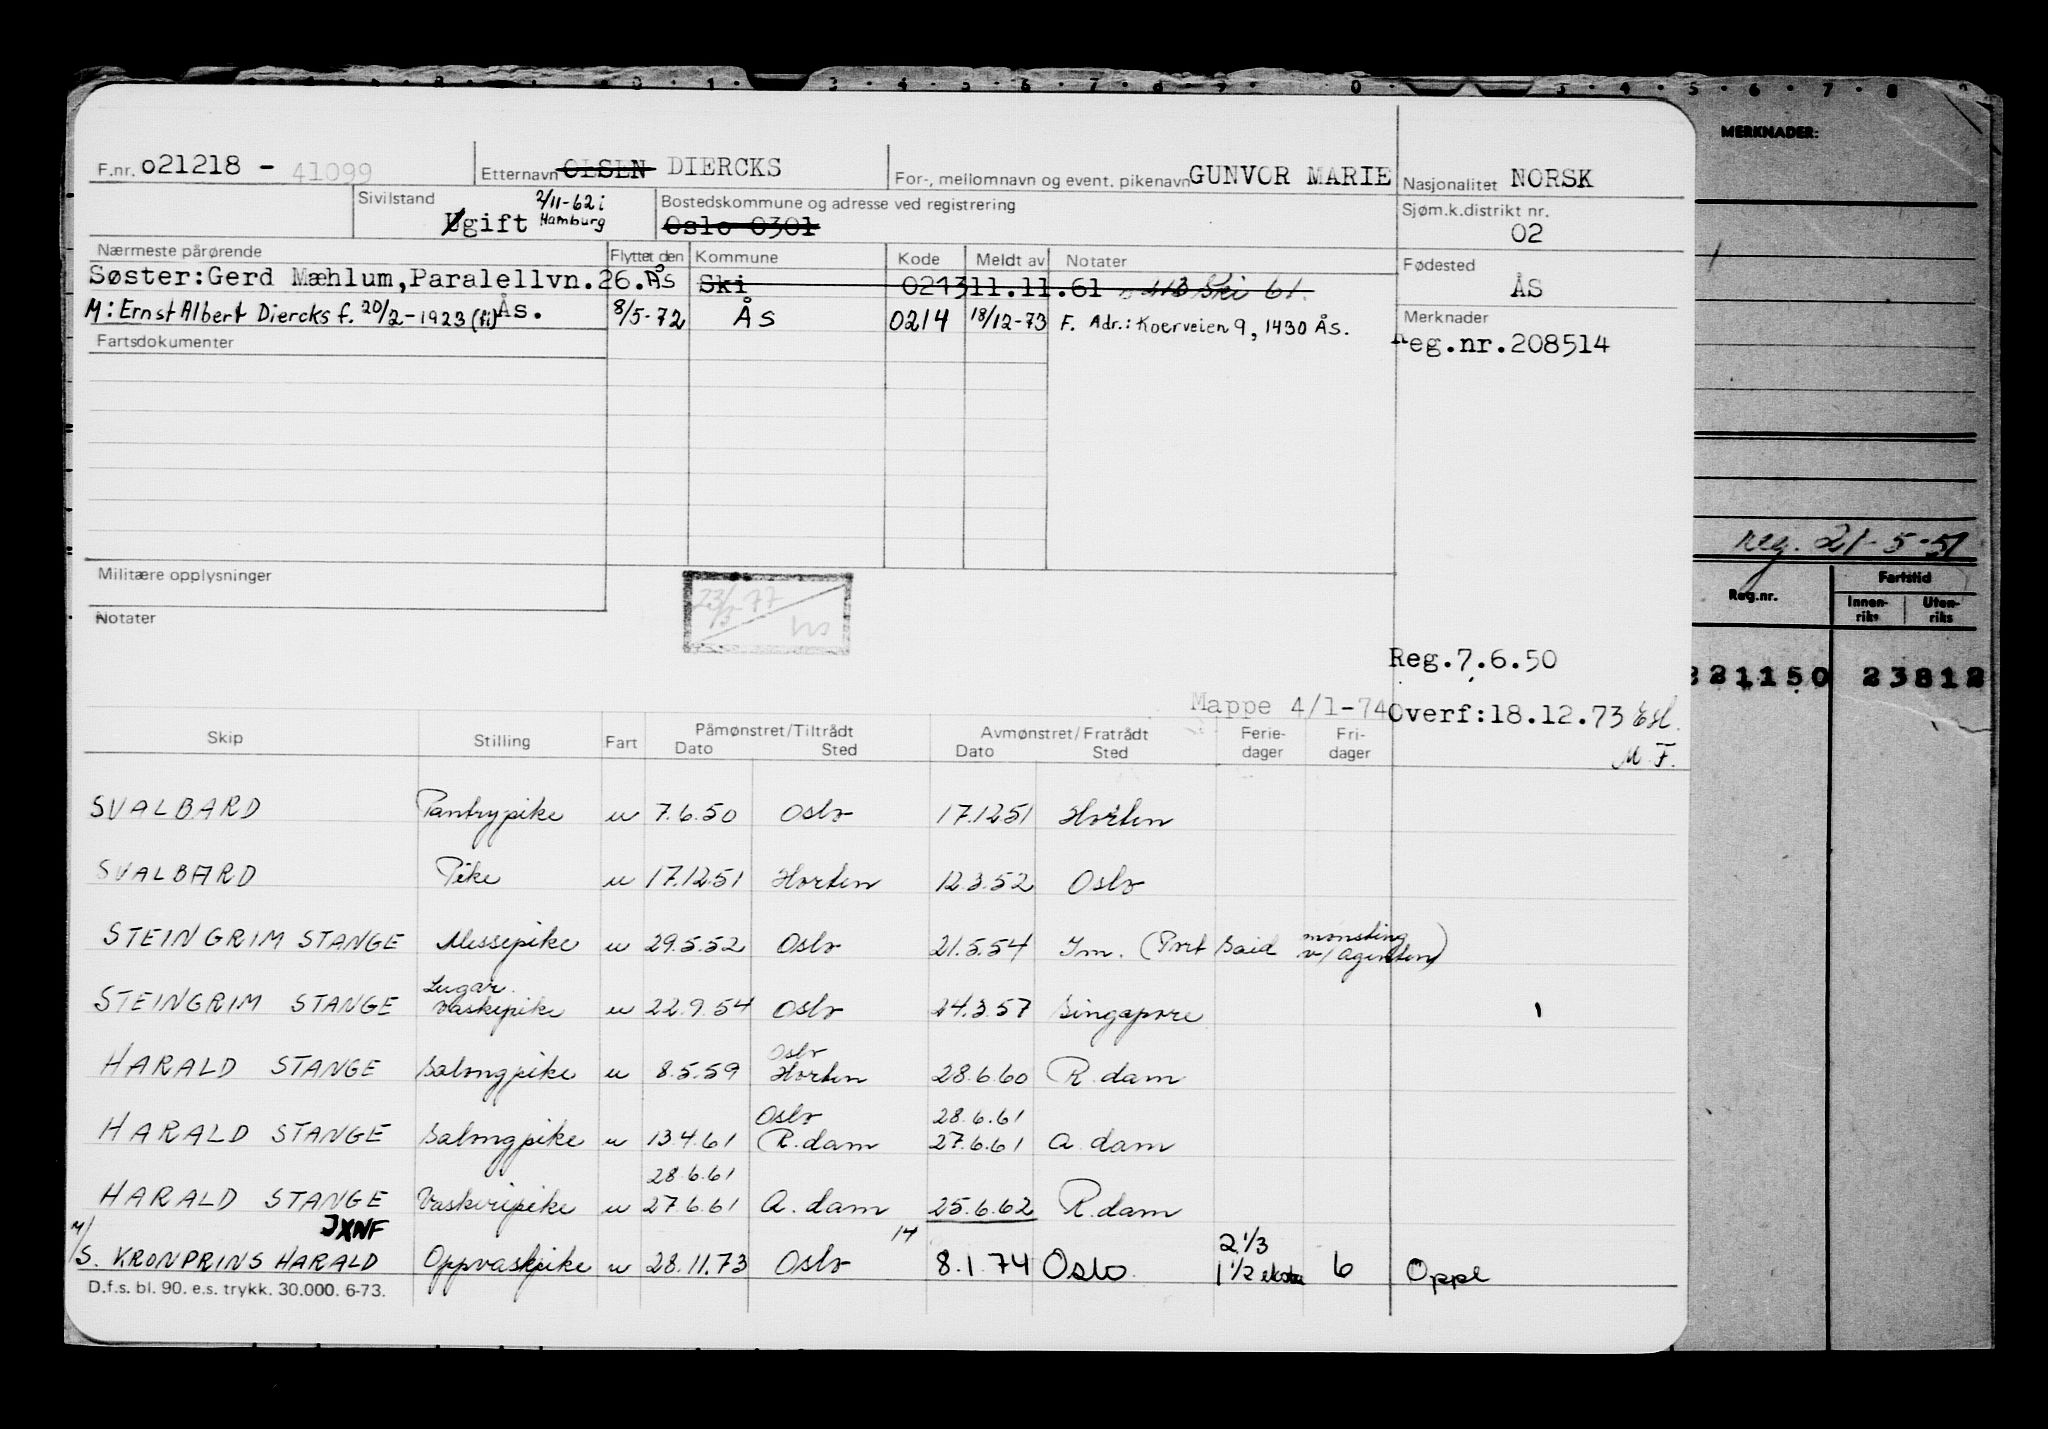 MERKNADER:
F.nr. 021218 - 41099 Etternavn OLSEN DIERCKS For-, mellomnavn og event. pikenavn GUNVOR MARIE Nasjonalitet NORSK
Sivilstand Ugift 2/11-62 i Hamburg Bostedskommune og adresse ved registrering Oslo 0301 Sjøm.k.distrikt nr. 02
Nærmeste pårørende Flyttet den Kommune Kode Meldt av Notater Fødested ÅS
Søster:Gerd Mæhlum,Paralellvn.26.Ås Ski 0213 11.11.61 Ski 61.
M: Ernst Albert Diercks f. 20/2-1923 (ti) Ås. 8/5-72 ÅS 0214 18/12-73 F. Adr.: Koerveien 9, 1430 Ås.
Merknader
Reg.nr.208514
Fartsdokumenter
reg. 21-5-51
Militære opplysninger
Notater
23/3 77
Reg.nr. Fartstid
Innen-riks Uten-riks
221150 23812
Reg.7.6.50
Mappe 4/1-74 Overf:18.12.73 Esl.
M.F.
Skip Stilling Fart Påmønstret/Tiltrådt Avmønstret/Fratrådt Ferie-dager Fri-dager
Dato Sted Dato Sted
SVALBARD Pantrypike u 7.6.50 Oslo 17.12.51 Horten
SVALBARD Pike u 17.12.51 Horten 12.3.52 Oslo
STEINGRIM STANGE Messepike u 29.5.52 Oslo 21.5.54 Im. (Port Said mønstring v/ Agenten)
STEINGRIM STANGE Lugar. vaskepike u 22.9.54 Oslo 24.3.57 Singapore
HARALD STANGE Salongpike u 8.5.59 Oslo Horten 28.6.60 R.dam
HARALD STANGE Salongpike u 13.4.61 Oslo R.dam 28.6.61 27.6.61 A.dam
HARALD STANGE Vaskeripike u 28.6.61 27.6.61 A.dam 25.6.62 R.dam
M/S. KRONPRINS HARALD JXNF Oppvaskpike u 28.11.73 Oslo 14 8.1.74 Oslo 2 1/3 1 1/2 ekstra 6 Oppl
D.f.s. bl. 90. e.s. trykk. 30.000. 6-73.